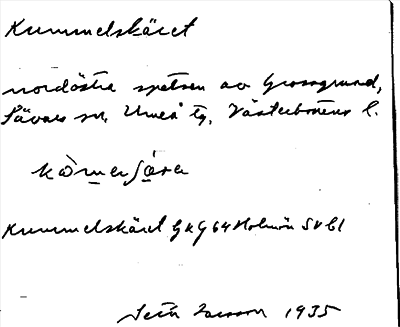 Kummelskäret
nordöstra spetsen av Grossgrund,
Sävars sn, Umeå tg, Västerbottens l.
Kummelskäret GKG 64 Holmön SV bl
1935